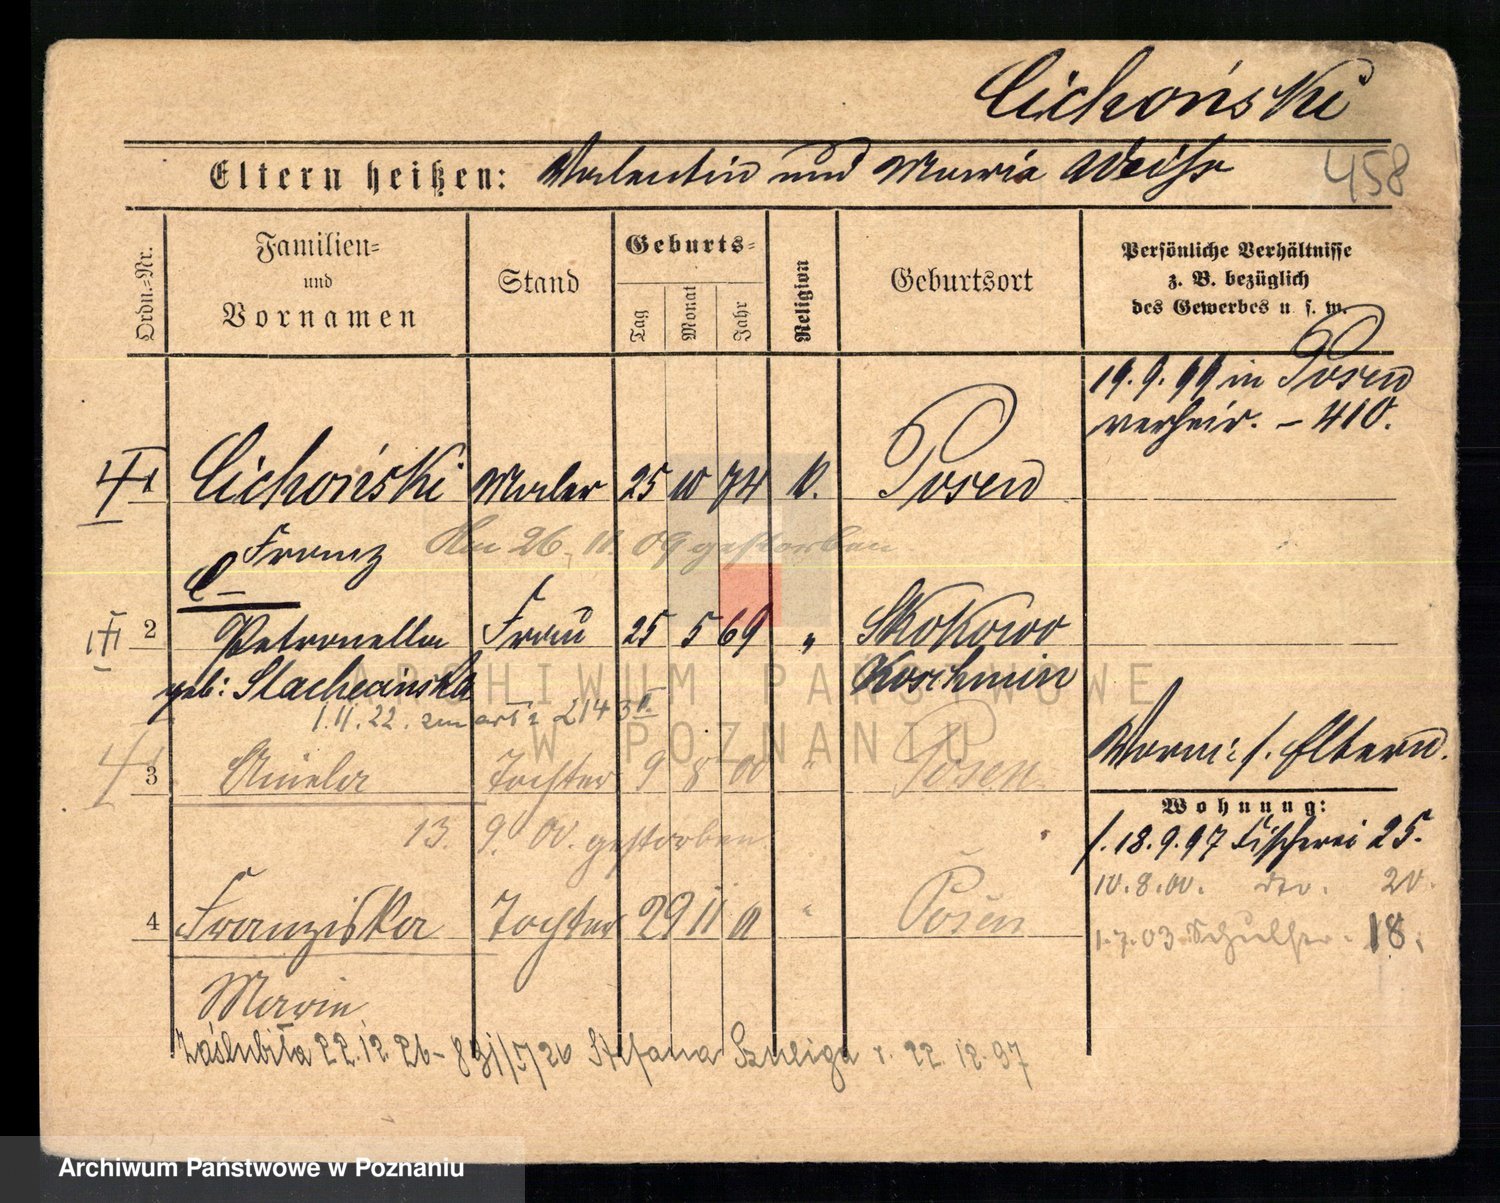 Cichoński
Eltern heißen: Valentin und Maria Weiss
458
Ordn.-Nr.
Familien-
und
Vornamen
Stand
Geburts-
Tag
Monat
Jahr
Religion
Geburtsort
Persönliche Verhältnisse
z. B. bezüglich
des Gewerbes u. s. w.
19.9.99 in Posen
verheir. – 410.
1 Cichoński Maler 25 10 74 k. Posen
Franz
Am 26. 11. 09 gestorben
2 Petronella Frau 25 5 69 " Skokowo
geb: Stacheanska Koschmin
1.11.22. 2143
3 Aniela Tochter 9 8 00 " Posen
13. 9. 00. gestorben.
4 Franziska Tochter 29 11 01 " Posen
Marie
Vorm: s. Eltern.
Wohnung:
18.9.97 Fischerei 25.
10.8.00. dto. 20.
1.7.03 18.
Zaślubiła 22.12.26 – Stefana Szuliga r. 22.12.97
ARCHIWUM PAŃSTWOWE
W POZNANIU
Archiwum Państwowe w Poznaniu